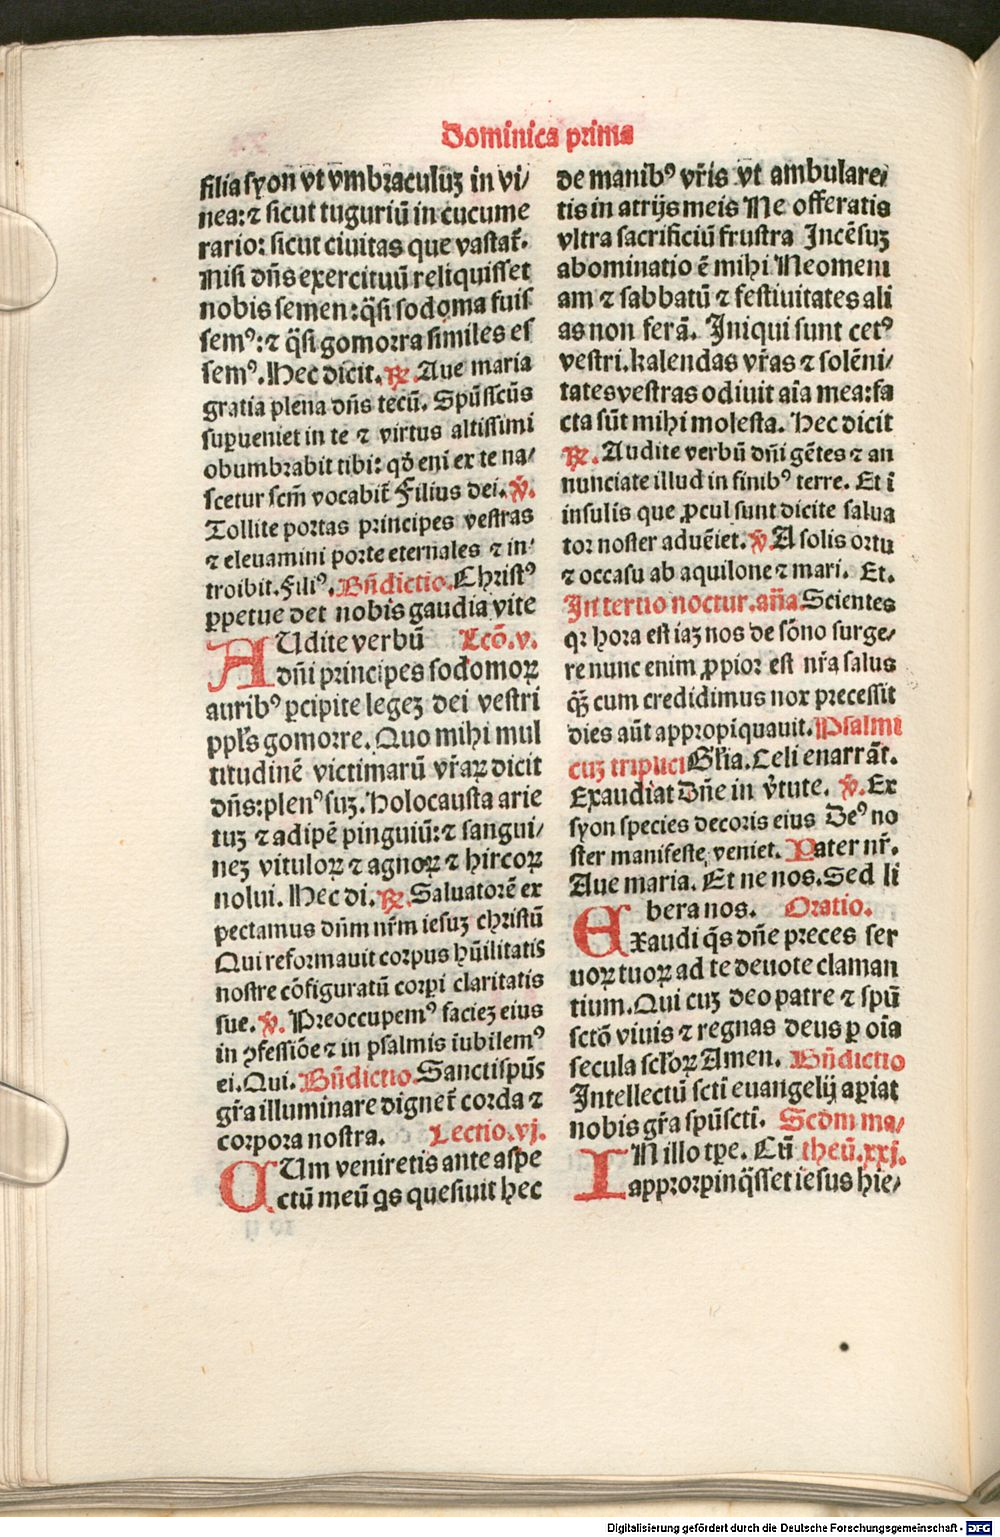 Dominica prima
filia syon̄ vt vmbraculuꝫ in vi/
nea: ⁊ sicut tuguriū in cucume
rario: sicut ciuitas que vastat̄.
Nisi dn̄s exercituū reliquisset
nobis semen: q̄si sodoma fuis
semꝰ: ⁊ q̄si gomorra similes es
semꝰ. Hec dicit. ℟. Aue maria
gratia plena dn̄s tecū. Spūssctūs
supueniet in te ⁊ virtus altissimi
obumbrabit tibi: qd̄ eni ex te na/
scetur scm̄ vocabit̄ Filius dei. ℣.
Tollite portas principes vestras
⁊ eleuamini porte eternales ⁊ in/
troibit. Filiꝰ. Bn̄dictio. Christꝰ
ꝑpetue det nobis gaudia vite
AUdite verbū Lcō. v.
dn̄i principes sodomoꝝ
auribꝰ ꝑcipite legeꝫ dei vestri
ppl̄s gomorre. Quo mihi mul
titudinē victimarū vr̄aꝝ dicit
dn̄s: plenꝰ suꝫ. Holocausta arie
tuꝫ ⁊ adipē pinguiū: ⁊ sangui/
neꝫ vituloꝝ ⁊ agnoꝝ ⁊ hircoꝝ
nolui. Hec di. ℟. Saluatorē ex
pectamus dn̄m nr̄m iesuꝫ christū
Qui reformauit corpus hūilitatis
nostre cōfiguratū corꝑi claritatis
sue. ℣. Preoccupemꝰ facieꝫ eius
in ꝯfessiōe ⁊ in psalmis iubilemꝰ
ei. Qui. Bn̄dictio. Sanctispūs
gr̄a illuminare dignet̄ corda ⁊
corpora nostra. Lectio. vj.
CUm veniretis ante aspe
ctū meū qs quesiuit hec
de manibꝰ vr̄is vt ambulare/
tis in atrijs meis Ne offeratis
vltra sacrificiū frustra Incēsuꝫ
abominatio ē mihi Neomeni
am ⁊ sabbatū ⁊ festiuitates ali
as non ferā. Iniqui sunt cetꝰ
vestri. kalendas vr̄as ⁊ solēni/
tates vestras odiuit aīa mea: fa
cta sūt mihi molesta. Hec dicit
℟. Audite verbū dn̄i gētes ⁊ an
nunciate illud in finibꝰ terre. Et ī
insulis que ꝓcul sunt dicite salua
tor noster aduēiet. ℣. A solis ortu
⁊ occasu ab aquilone ⁊ mari. Et.
In tertio noctur. an̄a. Scientes
qꝛ hora est iaꝫ nos de sōno surge/
re nunc enim ꝓpior est nr̄a salus
qꝫ̄ cum credidimus nox precessit
dies aūt appropiquauit. Psalmi
cuꝫ triplici Gl̄ia. Celi enarrāt.
Exaudiat Dn̄e in v̄tute. ℣. Ex
syon species decoris eius Deꝰ no
ster manifeste veniet. Pater nr̄.
Aue maria. Et ne nos. Sed li
bera nos. Oratio.
Exaudi q̄s dn̄e preces ser
uoꝝ tuoꝝ ad te deuote claman
tium. Qui cuꝫ deo patre ⁊ spū
sctō viuis ⁊ regnas deus ꝑ oīa
secula scl̄oꝝ Amen. Bn̄dictio
Intellectū scti euangelij aꝑiat
nobis gr̄a spūsctī. Scdm ma/
IN illo tꝑe. Cū theū. xxj.
approꝛpinq̄sset iesus hie/
Digitalisierung gefördert durch die Deutsche Forschungsgemeinschaft - DFG